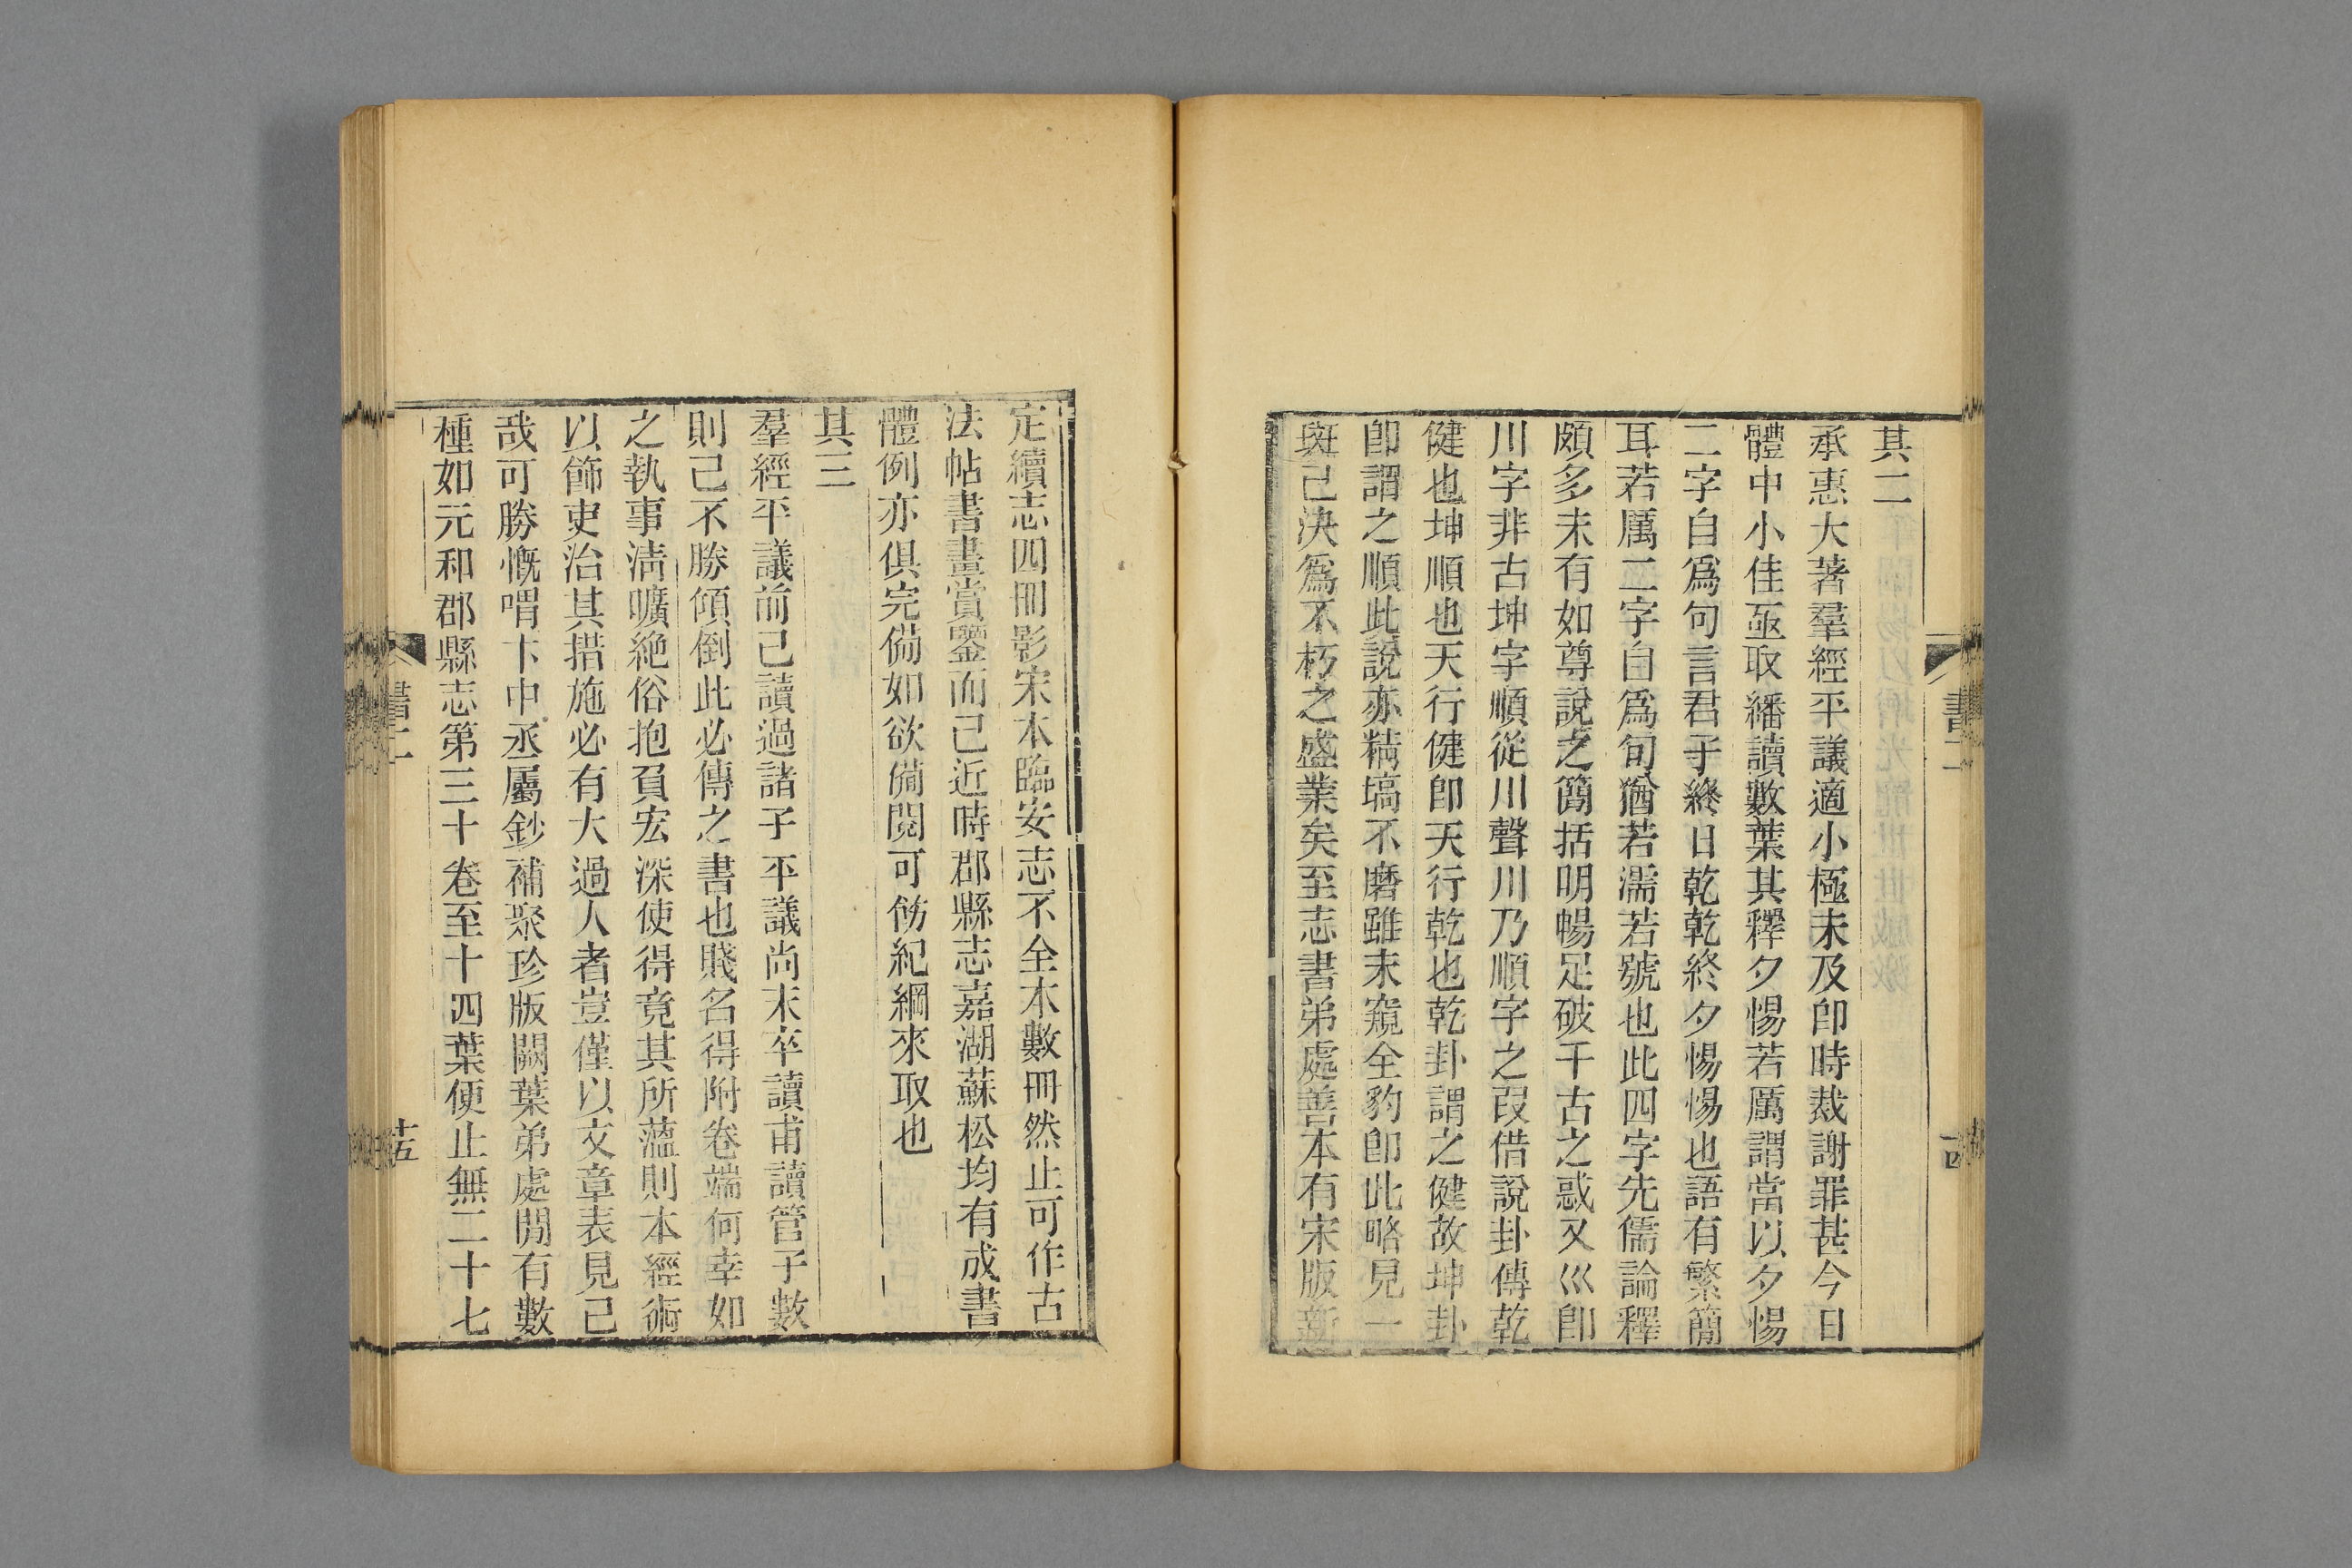 其二
承惠大著羣經平議適小極未及卽時裁謝罪甚今日
體中小佳亟取繙讀數葉其釋夕惕若厲謂當以夕惕
二字自爲句言君子終日乾乾終夕惕惕也語有繁簡
耳若厲二字自爲句猶若濡若號也此四字先儒論釋
頗多未有如尊說之簡括明暢足破千古之惑又巛卽
川字非古坤字順從川聲川乃順字之叚借說卦傳乾
健也坤順也天行健卽天行乾也乾卦謂之健故坤卦
卽謂之順此說亦精塙不磨雖未窺全豹卽此略見一
斑已決爲不朽之盛業矣至志書弟處善本有宋版新
書二
古
定續志四冊影宋本臨安志不全本數冊然止可作古
法帖書畫賞鑒而已近時郡縣志嘉湖蘇松均有成書
體例亦俱完備如欲備閱可飭紀綱來取也
其三
羣經平議前已讀過諸子平議尚未卒讀甫讀管子數
則已不勝傾倒此必傳之書也賤名得附卷端何幸如
之執事淸曠絶俗抱負宏深使得竟其所蘊則本經術
以飾吏治其措施必有大過人者豈僅以文章表見已
哉可勝慨喟卞中丞屬鈔補聚珍版闕葉弟處閒有數
種如元和郡縣志第三十卷至十四葉便止無二十七
書二
十五